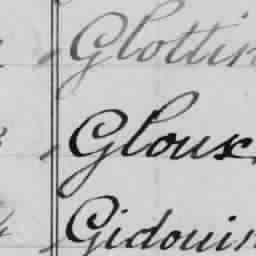 Glottin
Gloux
Gidouin